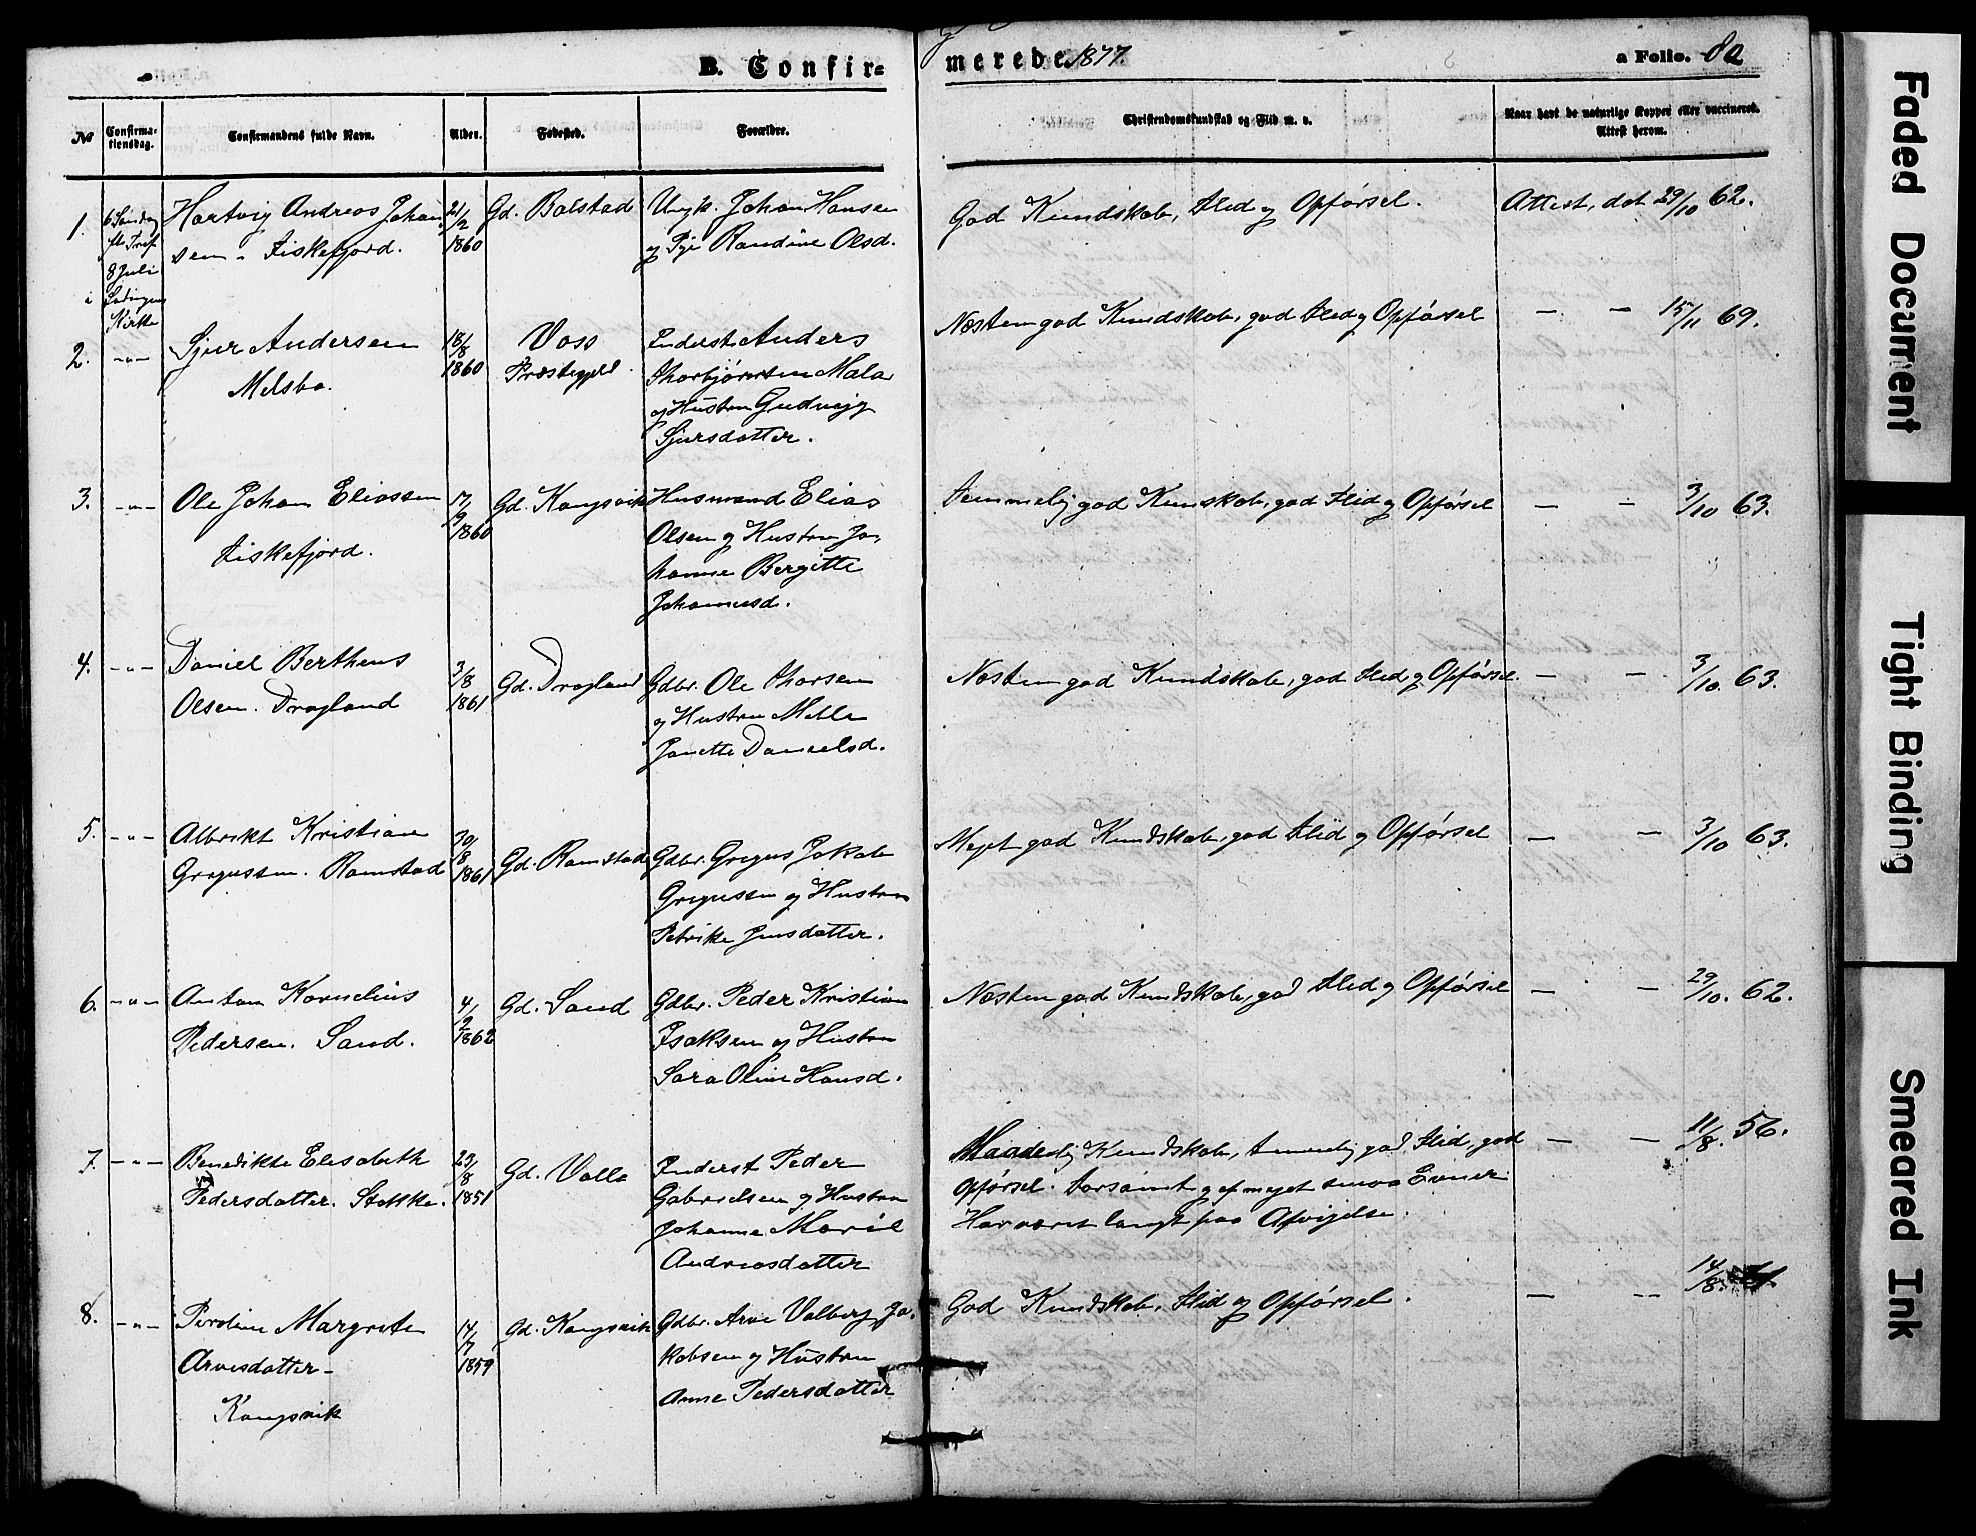 B. Confir=
merede 1877.
a Folio. 82
No
Confirma-
tionsdag.
Confirmandens fulde Navn.
Alder.
Fødested.
Forældre.
Christendomskundskab og Flid m. v.
Naar havt de naturlige Kopper eller vaccineret.
Attest herom.
1.
6 Søndag
fl. Tref.
8 Juli
i Lødingens
Kirke
Hartvig Andreas Johan-
sen - Fiskefjord.
21/2
1860
Gd. Balstad
Ungk. Johan Hansen
og Pige Randine Olsd.
God Kundskab, Flid og Opførsel.
Attest, dat 29/10 62.
2. -"-
Sjur Andersen
Melsbo.
18/8
1860
Voss
Præstegjeld.
Inderst Anders
Thorbjørnsen Mala
og Hustru Gudveig
Sjursdatter.
Næsten god Kundskab, god Flid og Opførsel
- - 15/11 69.
3. -"-
Ole Johan Eliassen
Fiskefjord.
17/9
1860
Gd. Kongsvik
Husmand Elias
Olsen og Hustru Jo-
hanne Bergitte
Johannesd.
Temmelig god Kunskab, god Flid og Opførsel
- - 3/10 63.
4. -"-
Daniel Bertheus
Olsen. Dragland
3/8
1861
Gd. Dragland
Gdbr. Ole Thorsen
og Hustru Mille
Janette Danielsd.
Næsten god Kundskab, god Flid og Opførsel.
- - 3/10. 63.
5. -"-
Albrikt Kristian
Gregussen. Ramstad
30/8
1861
Gd. Ramstad
Gdbr. Gregus Jakob
Gregussen og Hustru
Petrike Jensdatter.
Meget god Kundskab, god Flid og Opførsel
- - 3/10 63.
6. -"-
Anton Kornelius
Pedersen. Sand.
4/2
1862
Gd. Sand
Gdbr. Peder Kristian
Isaksen og Hustru
Sara Oline Hansd.
Næsten god Kundskab, god Flid og Opførsel
- - 29/10. 62.
7. -"-
Benedikte Elisabeth
Pedersdatter. Stokke.
23/8
1851
Gd. Valle
Inderst Peder
Gabrielsen og Hustru
Johanne Marie
Andreasdatter
Maadelig Kundskab, temmelig god Flid, god
Opførsel. Forsømt og af meget smaa Evner
Har været langt paa Afveielse.
- - 11/8. 56.
8. -"-
Peroline Margrete
Arnesdatter -
Kongsvik
14/7
1859
Gd. Kongsvik
Gdbr. Arne Valberg Ja-
kobsen og Hustru
Anne Pedersdatter
God Kundskab, Flid og Opførsel.
- - 14/8.
Faded Document
Tight Binding
Smeared Ink